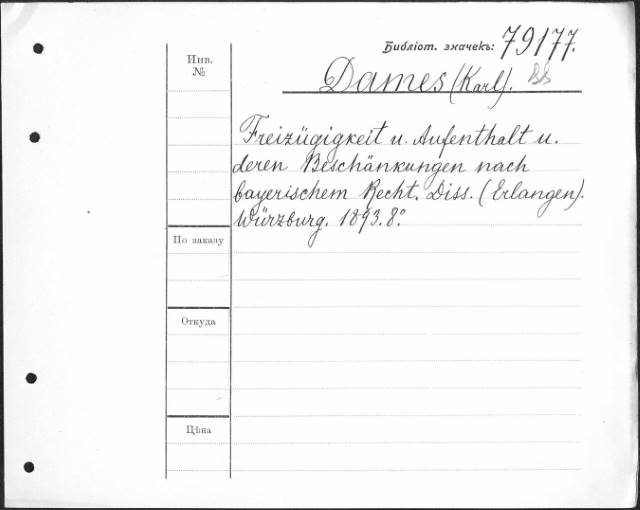 Библіот. значекъ: 79177.
Инв.
№
Dames (Karl).
Freizügigkeit u. Aufenthalt u.
deren Beschänkungen nach
bayerischem Recht. Diss. (Erlangen).
Würzburg. 1893. 8º.
По заказу
Откуда
Цѣна